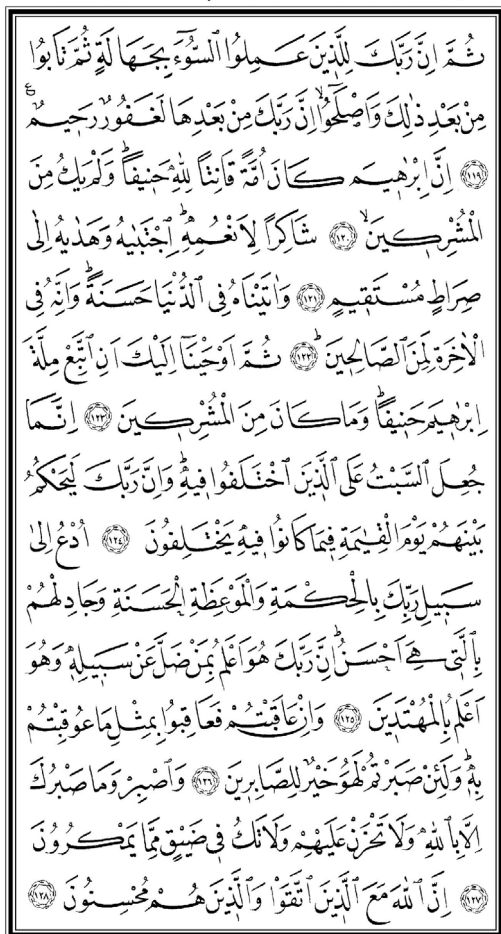 ثُمَّ اِنَّ رَبَّكَ لِلَّذٖينَ عَمِلُوا السُّٓوءَ بِجَهَالَةٍ ثُمَّ تَابُوا
مِنْ بَعْدِ ذٰلِكَ وَاَصْلَحُٓوا اِنَّ رَبَّكَ مِنْ بَعْدِهَا لَغَفُورٌ رَحٖيمٌ ع
﴿١١٩﴾ اِنَّ اِبْرٰهٖيمَ كَانَ اُمَّةً قَانِتاً لِلّٰهِ حَنٖيفاًؕ وَلَمْ يَكُ مِنَ
الْمُشْرِكٖينَۙ ﴿١٢٠﴾ شَاكِراً لِاَنْعُمِهٖؕ اِجْتَبٰيهُ وَهَدٰيهُ اِلٰى
صِرَاطٍ مُسْتَقٖيمٍ ﴿١٢١﴾ وَاٰتَيْنَاهُ فِي الدُّنْيَا حَسَنَةًؕ وَاِنَّهُ فِي
الْاٰخِرَةِ لَمِنَ الصَّالِحٖينَؕ ﴿١٢٢﴾ ثُمَّ اَوْحَيْنَٓا اِلَيْكَ اَنِ اتَّبِعْ مِلَّةَ
اِبْرٰهٖيمَ حَنٖيفاًؕ وَمَا كَانَ مِنَ الْمُشْرِكٖينَ ﴿١٢٣﴾ اِنَّمَا
جُعِلَ السَّبْتُ عَلَى الَّذٖينَ اخْتَلَفُوا فٖيهِؕ وَاِنَّ رَبَّكَ لَيَحْكُمُ
بَيْنَهُمْ يَوْمَ الْقِيٰمَةِ فٖيمَا كَانُوا فٖيهِ يَخْتَلِفُونَ ﴿١٢٤﴾ اُدْعُ اِلٰى
سَبٖيلِ رَبِّكَ بِالْحِكْمَةِ وَالْمَوْعِظَةِ الْحَسَنَةِ وَجَادِلْهُمْ
بِالَّتٖي هِيَ اَحْسَنُؕ اِنَّ رَبَّكَ هُوَ اَعْلَمُ بِمَنْ ضَلَّ عَنْ سَبٖيلِهٖ وَهُوَ
اَعْلَمُ بِالْمُهْتَدٖينَ ﴿١٢٥﴾ وَاِنْ عَاقَبْتُمْ فَعَاقِبُوا بِمِثْلِ مَا عُوقِبْتُمْ
بِهٖؕ وَلَئِنْ صَبَرْتُمْ لَهُوَ خَيْرٌ لِلصَّابِرٖينَ ﴿١٢٦﴾ وَاصْبِرْ وَمَا صَبْرُكَ
اِلَّا بِاللّٰهِ وَلَا تَحْزَنْ عَلَيْهِمْ وَلَا تَكُ فٖي ضَيْقٍ مِمَّا يَمْكُرُونَ
﴿١٢٧﴾ اِنَّ اللّٰهَ مَعَ الَّذٖينَ اتَّقَوْا وَالَّذٖينَ هُمْ مُحْسِنُونَ ﴿١٢٨﴾